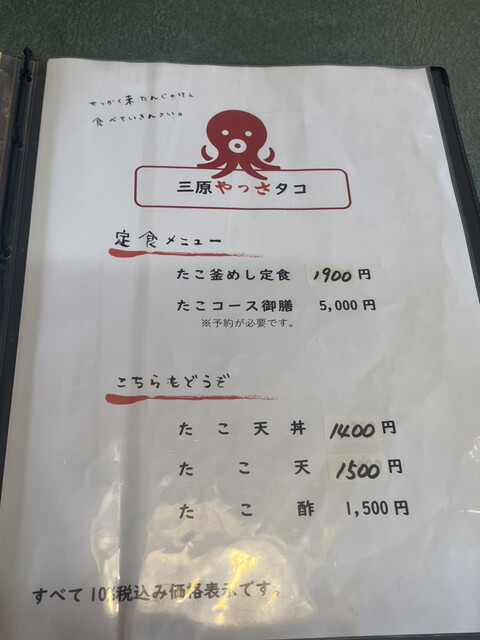 せっかく来たんじゃけぇ
食べていきんさい。
三原やっさタコ
定食メニュー
たこ釜めし定食 1900円
たこコース御膳 5,000円
※予約が必要です。
こちらもどうぞ
たこ天丼 1400円
たこ天 1500円
たこ酢 1,500円
すべて10%税込み価格表示です。